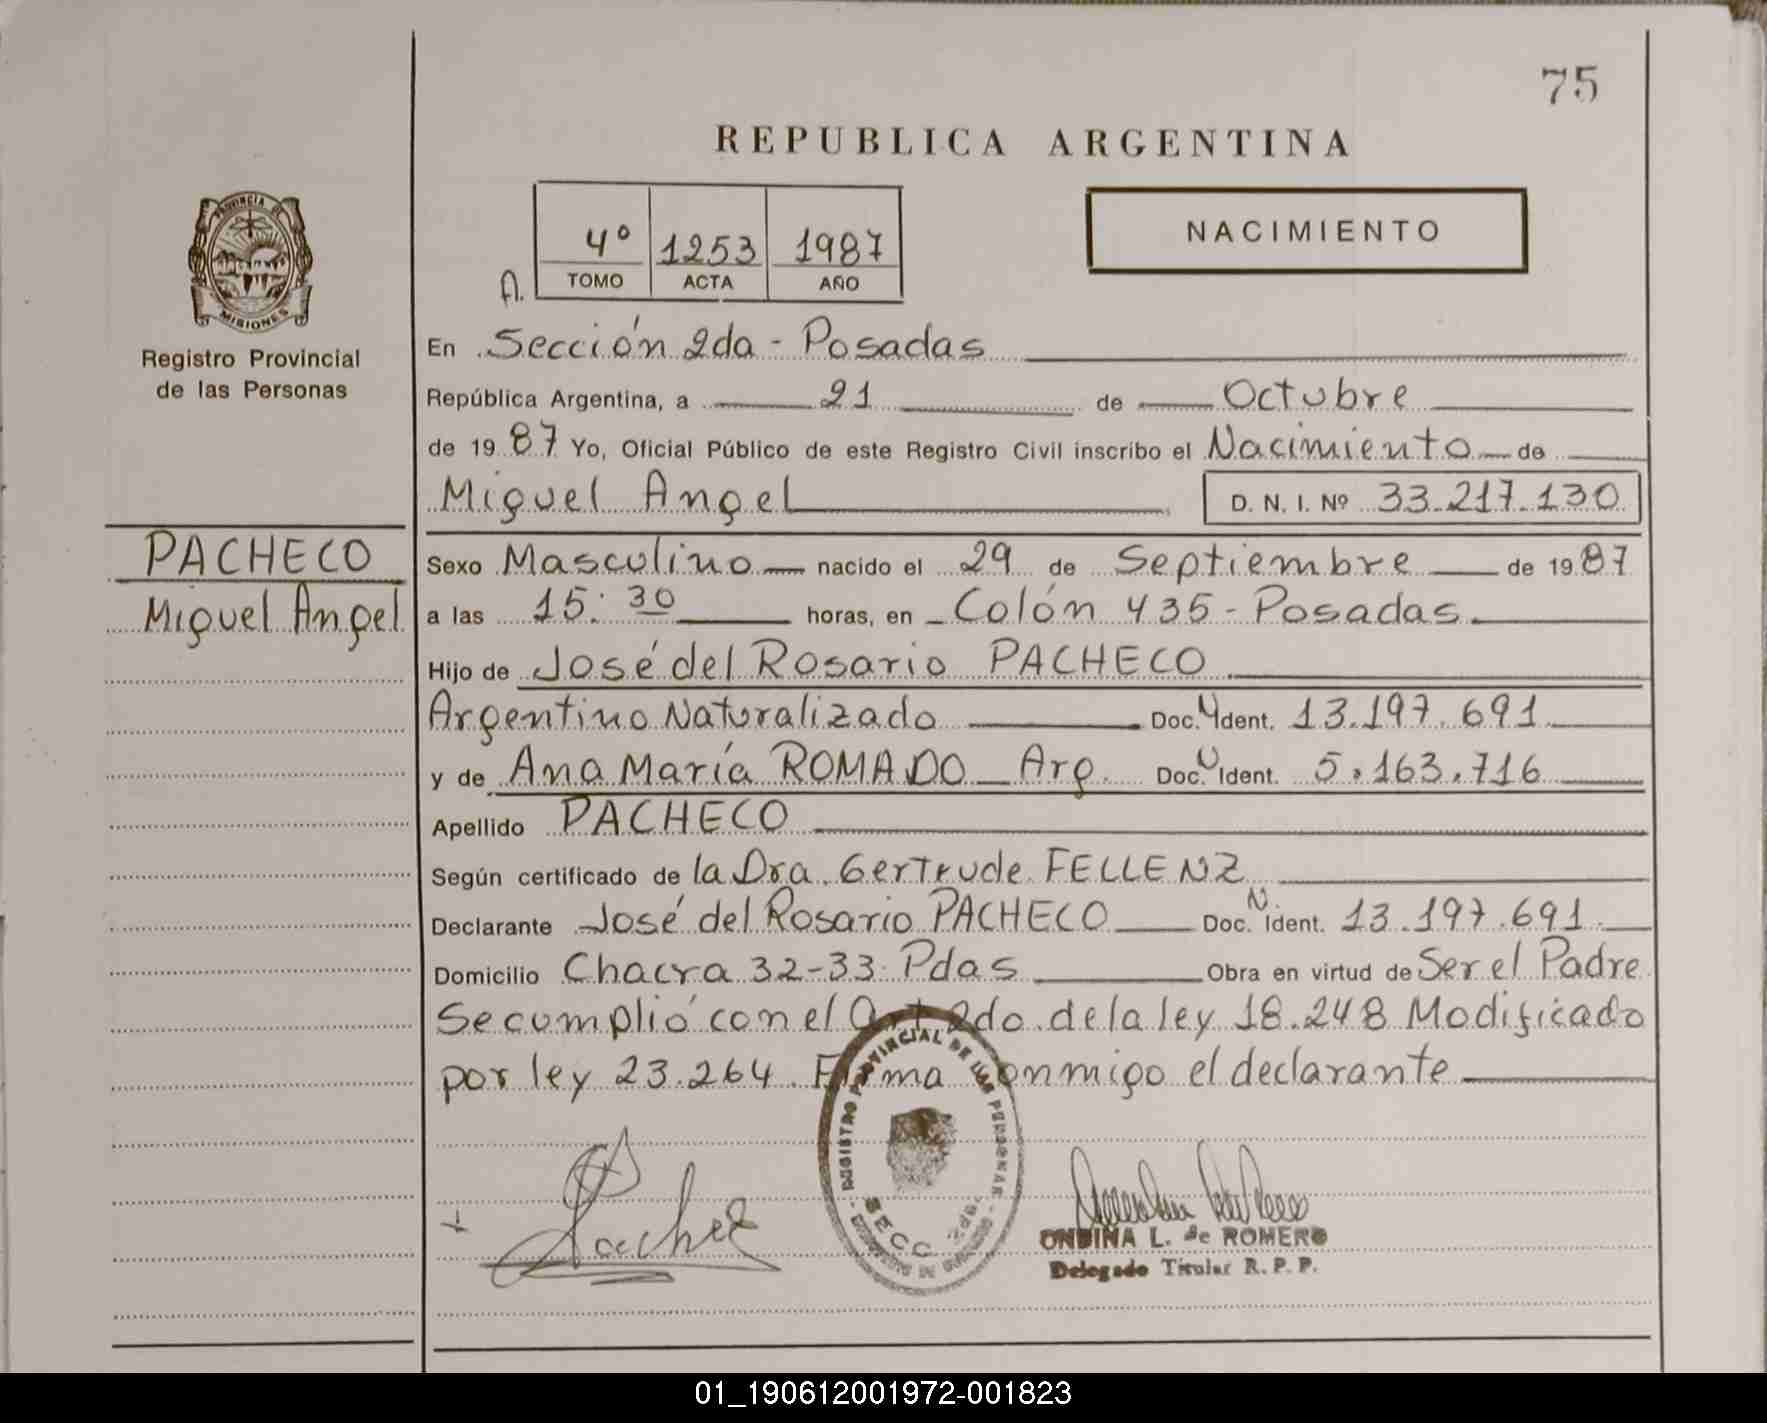 75
REPUBLICA ARGENTINA
PROVINCIA DE
MISIONES
Registro Provincial
de las Personas
A. 4º 1253 1987
TOMO ACTA AÑO
NACIMIENTO
En Sección 2da - Posadas
República Argentina, a 21 de Octubre
de 19 87 Yo, Oficial Público de este Registro Civil inscribo el Nacimiento de
Miguel Angel D. N. I. Nº 33.217.130
PACHECO
Miguel Angel
Sexo Masculino nacido el 29 de Septiembre de 19 87
a las 15:30 horas, en Colón 435 - Posadas.
Hijo de José del Rosario PACHECO
Argentino Naturalizado Doc. Ident. 13.197.691
y de Ana María ROMADO Arg. Doc. Ident. 5.163.716
Apellido PACHECO
Según certificado de la Dra. Gertrude FELLENZ
Declarante José del Rosario PACHECO Doc. N. Ident. 13.197.691
Domicilio Chacra 32-33 Pdas Obra en virtud de Ser el Padre
Se cumplió con el Art 2do. de la ley 18.248 Modificado
por ley 23.264. Firma conmigo el declarante
REGISTRO PROVINCIAL DE LAS PERSONAS
SECC 2da.
ONDINA L. de ROMERO
Delegado Titular R. P. P.
01_190612001972-001823